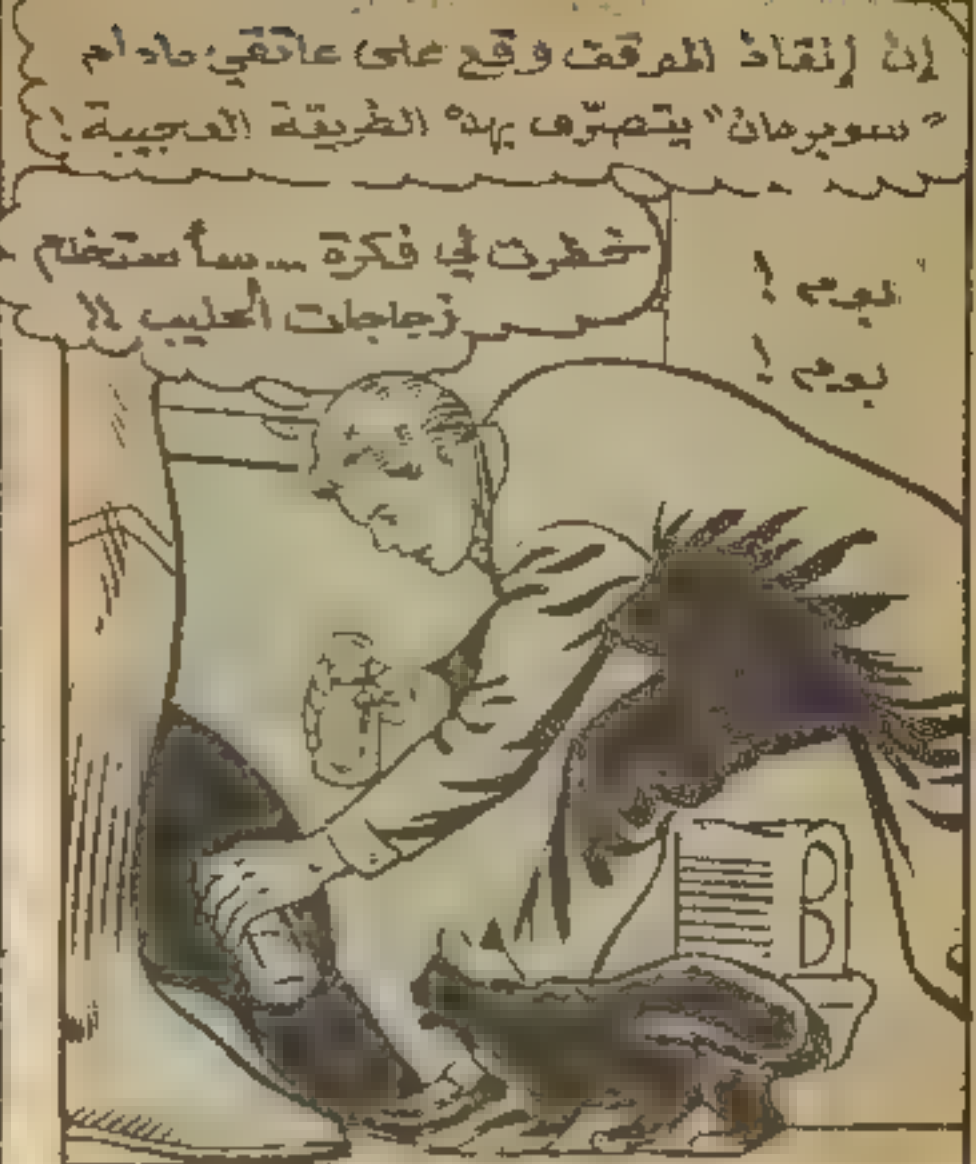 إن إنقاذ الموقف وقع على عاتقي مادام
"سوبرمان" يتصرّف بهذه الطريقة العجيبة !
خطرت لي فكرة ... سأستخدم
زجاجات الحليب !!
بوم !
بوم !